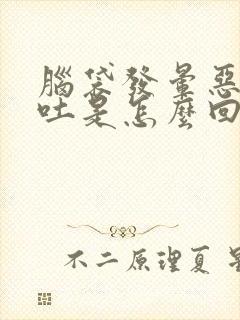 腦袋發暈惡
吐是怎麼回
不二原理夏